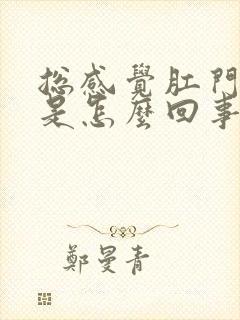 總感覺肛門
是怎麼回事
鄭曼青